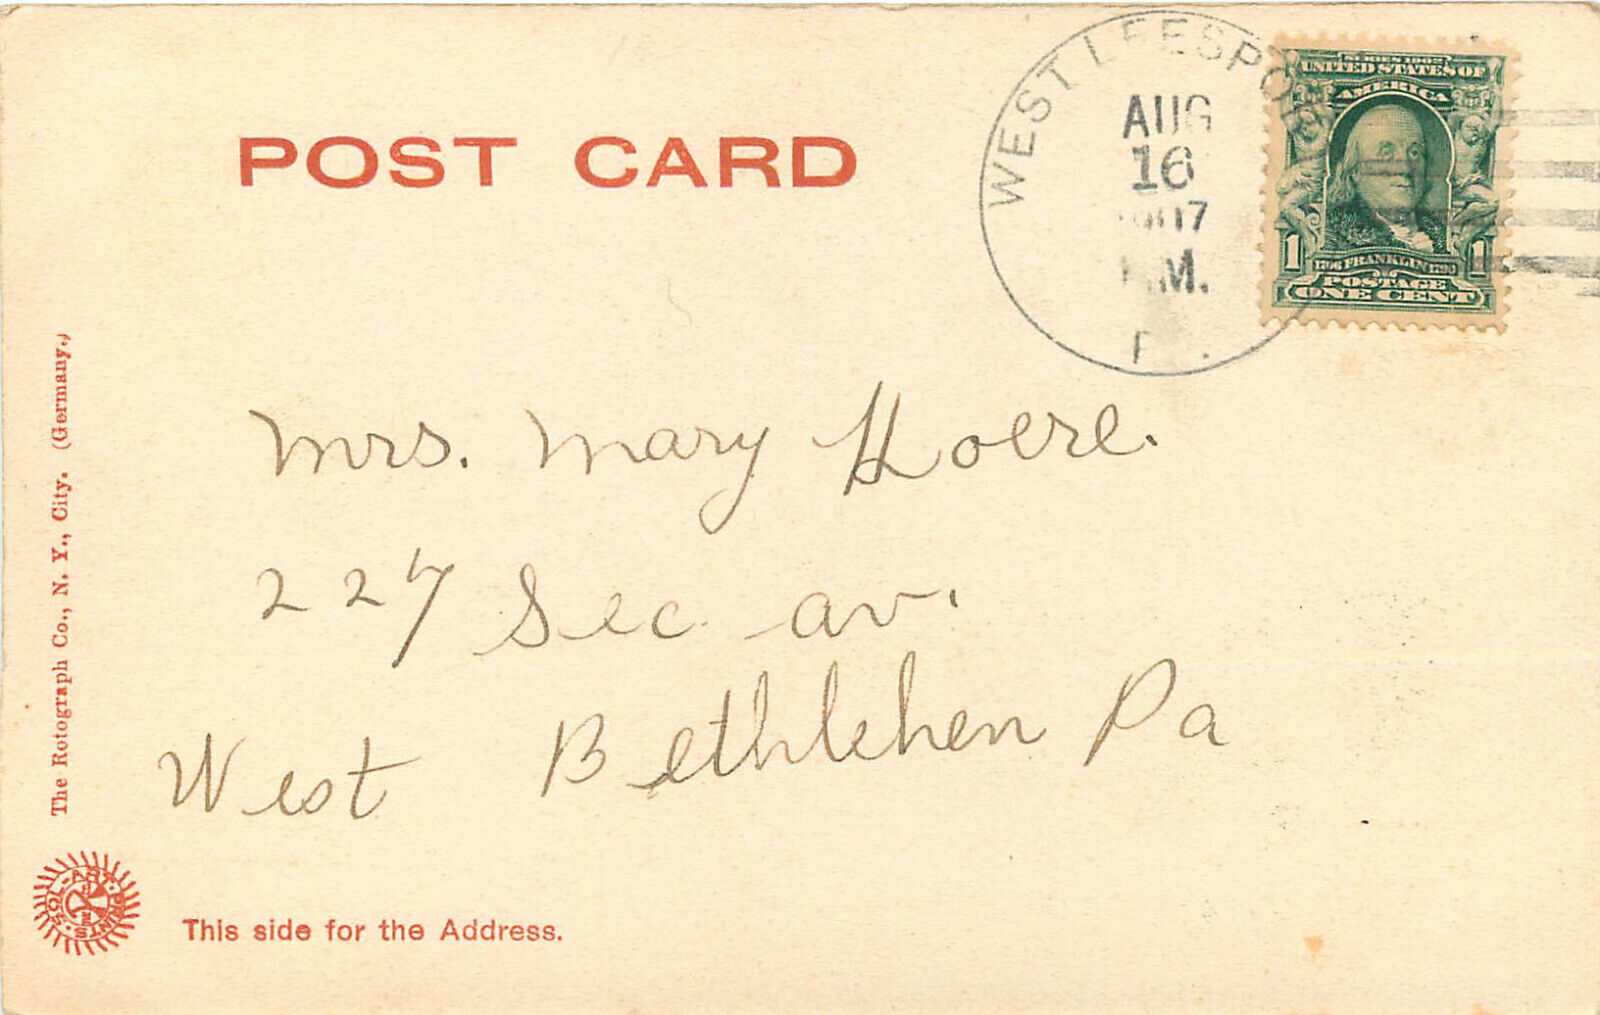 WEST LEESPORT
AUG
16
1907
P.M.
SERIES 1902
UNITED STATES OF
AMERICA
1 1
FRANKLIN
POSTAGE
ONE CENT
POST CARD
Mrs. Mary Hoere.
227 Sec. av.
West Bethlehen Pa
The Rotograph Co., N. Y., City. (Germany.)
SOL-ART PRINTS
This side for the Address.